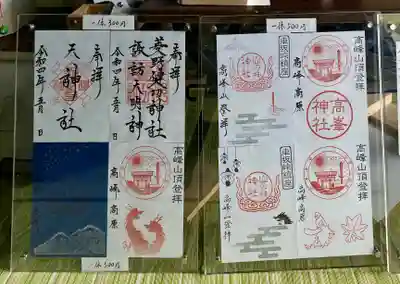 一体300円
奉拝
菱野健功神社
諏訪大明神
令和四年 月 日
奉拝
天神社
令和四年 月 日
高峰山頂登拝
高峰高原
一体300円
一体300円
高峰山頂登拝
高峯神社
高峰高原
車坂峠鎮座
高峰山登拝
高峰山頂登拝
高峰高原
車坂峠鎮座
高峰山登拝